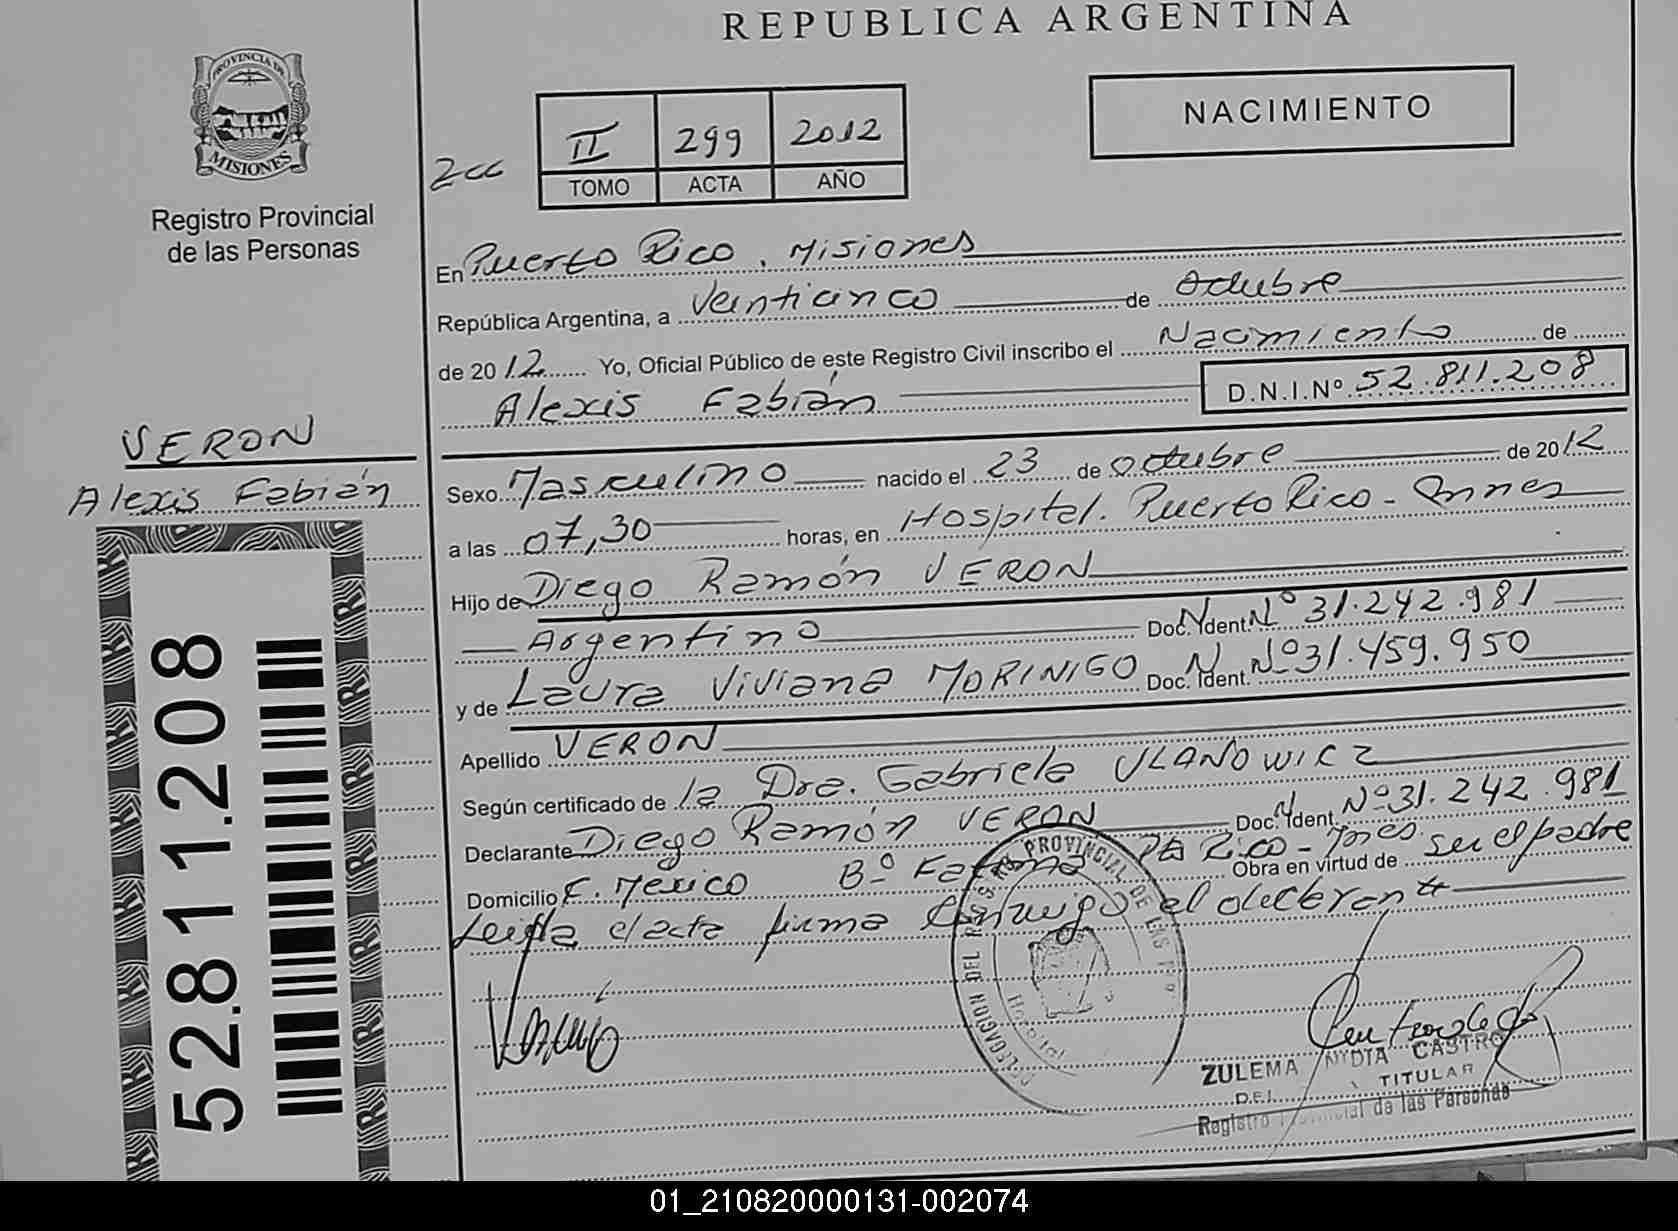 REPUBLICA ARGENTINA
PROVINCIA DE
MISIONES
Registro Provincial
de las Personas
2cc
II 299 2012
TOMO ACTA AÑO
NACIMIENTO
En Puerto Rico, Misiones
República Argentina, a Veinticinco de Octubre
de 2012 Yo, Oficial Público de este Registro Civil inscribo el Nacimiento de
Alexis Fabián D.N.I.Nº 52.811.208
VERON
Alexis Fabián
Sexo Masculino nacido el 23 de octubre de 2012
a las 07,30 horas, en Hospital. Puerto Rico - Mnes
Hijo de Diego Ramón VERON
Argentino Doc. Ident. Nº 31.242.981
y de Laura Viviana MORINIGO Doc. Ident. Nº 31.459.950
Apellido VERON
Según certificado de la Dra. Gabriela ULANOWICZ
Declarante Diego Ramón VERON Doc. Ident. Nº 31.242.981
Domicilio E. Mexico Bº Fatima Pto Rico - Mnes Obra en virtud de ser el padre
Leída el acta firma conmigo el declarante
52.811.208
DELEGACION DEL REG. PROVINCIAL DE LAS
Hospital
ZULEMA NYDIA CASTRO
TITULAR
Registro Provincial de las Personas
01_210820000131-002074